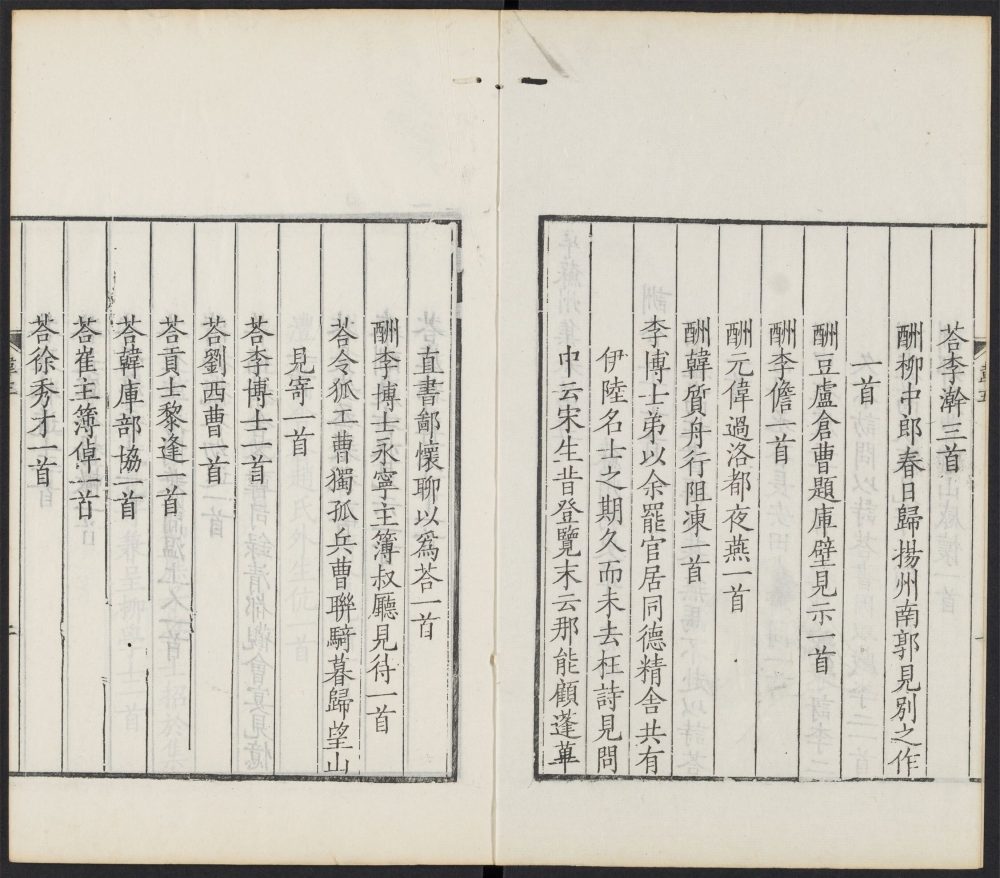 荅李澣三首
酬柳中郎春日歸揚州南郭見別之作
一首
酬豆盧倉曹題庫壁見示一首
酬李儋一首
酬元偉過洛都夜燕一首
酬韓質舟行阻凍一首
李博士弟以余罷官居同德精舍共有
伊陸名士之期久而未去枉詩見問
中云宋生昔登覽末云那能顧蓬蓽
直書鄙懷聊以爲荅一首
酬李博士永寧主簿叔廳見待一首
荅令狐工曹獨孤兵曹聯騎暮歸望山
見寄一首
荅李博士一首
荅劉西曹一首
荅貢士黎逢一首
荅韓庫部協一首
荅崔主簿倬一首
荅徐秀才一首